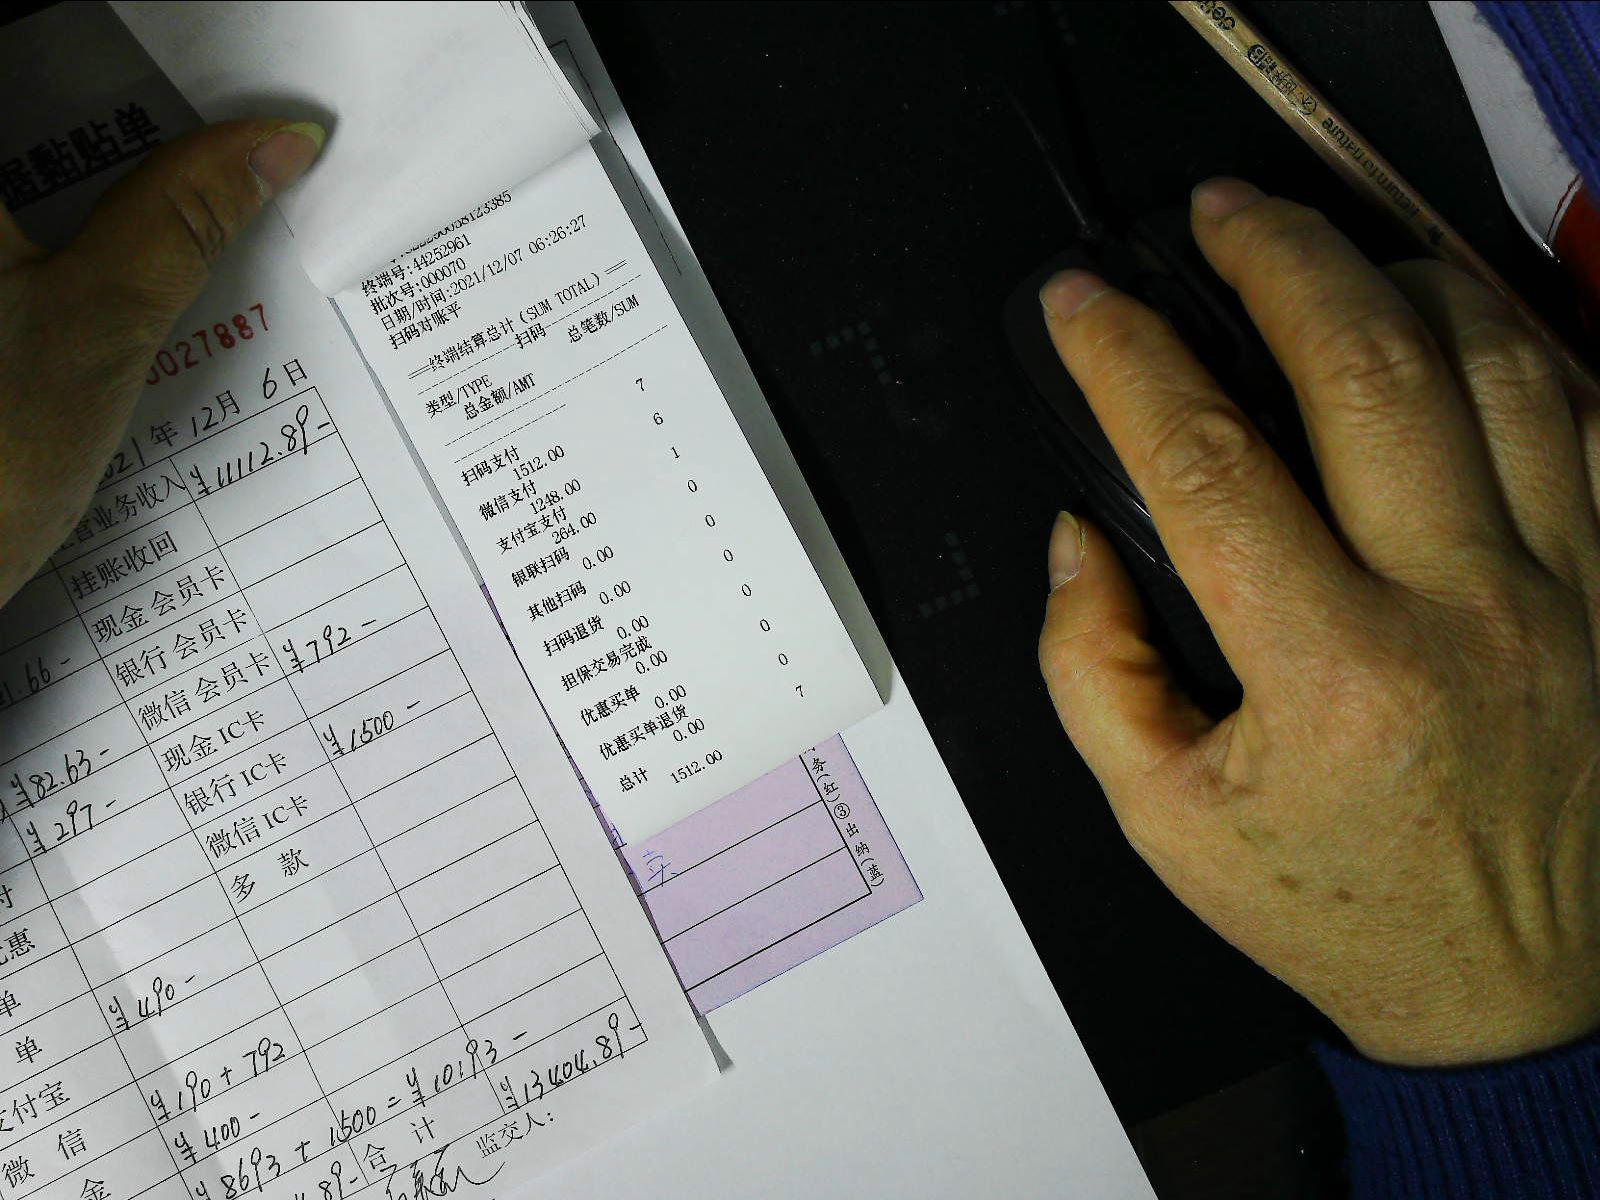 据黏贴单
0027887
2021年12月6日
营业务收入 ¥11112.89-
挂账收回
现金会员卡
银行会员卡
微信会员卡 ¥792-
现金IC卡
银行IC卡 ¥1500-
微信IC卡
多款
.66-
¥82.63-
¥297-
付
惠
单
单 ¥490-
支付宝 ¥190+792
微信 ¥400-
金 ¥8693+1500=¥10193-
.89- 合计 ¥13404.89-
监交人:
终端号:44252961
批次号:000070
日期/时间:2021/12/07 06:26:27
扫码对账平
==终端结算总计(SUM TOTAL)==
扫码
类型/TYPE 总笔数/SUM
总金额/AMT
扫码支付 7
1512.00
微信支付 6
1248.00
支付宝支付 1
264.00
银联扫码 0
0.00
其他扫码 0
0.00
扫码退货 0
0.00
担保交易完成 0
0.00
优惠买单 0
0.00
优惠买单退货 0
0.00
总计 7
1512.00
务(红)③出纳(蓝)
卖
deli
return to nature